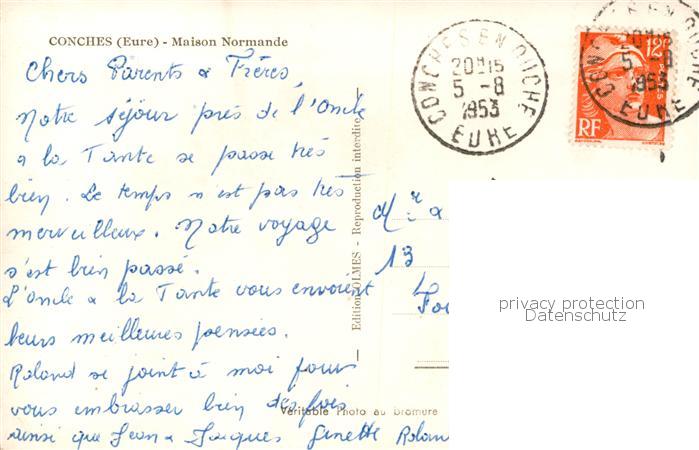 CONCHES (Eure) - Maison Normande
Chers Parents & Frères,
Notre séjour près de l'Oncle
& la Tante se passe très
bien. Le temps n'est pas très
merveilleux. Notre voyage
s'est bien passé.
L'Oncle & la Tante vous envoient
leurs meilleures pensées.
Roland se joint à moi pour
vous embrasser bien des fois
ainsi que Jean & Jacques Ginette Rolan
Véritable Photo au Bromure
Edition OLMES - Reproduction interdite
CONCHES EN OUCHE
20H15
5 - 8
1953
EURE
12F
POSTES
RF
CONCHES EN OUCHE
20H15
5 - 8
1953
EURE
Mr &
13
privacy protection
Datenschutz